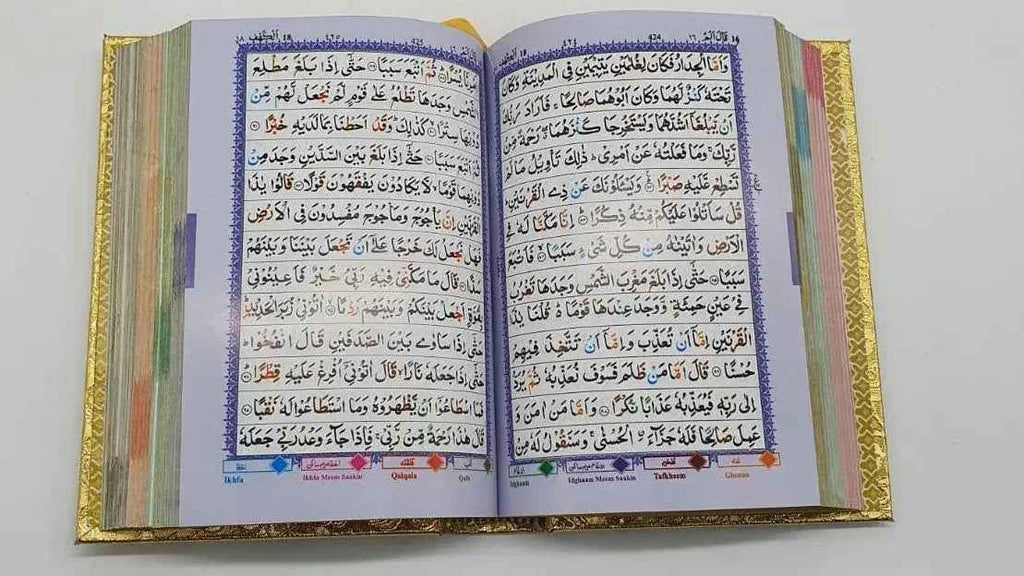 ١٦ قَالَ اَلَمْ 424 ٤٢٤ اَلْكَهْف ١٨
وَاَمَّا الْجِدَارُ فَكَانَ لِغُلٰمَيْنِ يَتِيْمَيْنِ فِي الْمَدِيْنَةِ وَكَانَ
تَحْتَهٗ كَنْزٌ لَّهُمَا وَكَانَ اَبُوْهُمَا صَالِحًا ۚ فَاَرَادَ رَبُّكَ
اَنْ يَّبْلُغَاۤ اَشُدَّهُمَا وَيَسْتَخْرِجَا كَنْزَهُمَا ۖ رَحْمَةً مِّنْ
رَّبِّكَ ۚ وَمَا فَعَلْتُهٗ عَنْ اَمْرِيْ ؕ ذٰلِكَ تَاْوِيْلُ مَا لَمْ
تَسْطِعْ عَّلَيْهِ صَبْرًا ۝ وَيَسْـَٔلُوْنَكَ عَنْ ذِي الْقَرْنَيْنِ ؕ
قُلْ سَاَتْلُوْا عَلَيْكُمْ مِّنْهُ ذِكْرًا ۝ اِنَّا مَكَّنَّا لَهٗ فِي
الْاَرْضِ وَاٰتَيْنٰهُ مِنْ كُلِّ شَيْءٍ سَبَبًا ۝ فَاَتْبَعَ
سَبَبًا ۝ حَتّٰۤى اِذَا بَلَغَ مَغْرِبَ الشَّمْسِ وَجَدَهَا تَغْرُبُ
فِيْ عَيْنٍ حَمِئَةٍ وَّوَجَدَ عِنْدَهَا قَوْمًا ؕ قُلْنَا يٰذَا
الْقَرْنَيْنِ اِمَّاۤ اَنْ تُعَذِّبَ وَاِمَّاۤ اَنْ تَتَّخِذَ فِيْهِمْ
حُسْنًا ۝ قَالَ اَمَّا مَنْ ظَلَمَ فَسَوْفَ نُعَذِّبُهٗ ثُمَّ يُرَدُّ
اِلٰى رَبِّهٖ فَيُعَذِّبُهٗ عَذَابًا نُّكْرًا ۝ وَاَمَّا مَنْ اٰمَنَ وَ
عَمِلَ صَالِحًا فَلَهٗ جَزَآءَ اۨلْحُسْنٰى ۚ وَسَنَقُوْلُ لَهٗ مِنْ
Idghaam Idghaam Meem Saakin Tafkheem Ghunna
اَلْكَهْف ١٨ 425 ٤٢٥
اَمْرِنَا يُسْرًا ۝ ثُمَّ اَتْبَعَ سَبَبًا ۝ حَتّٰۤى اِذَا بَلَغَ مَطْلِعَ
الشَّمْسِ وَجَدَهَا تَطْلُعُ عَلٰى قَوْمٍ لَّمْ نَجْعَلْ لَّهُمْ مِّنْ
دُوْنِهَا سِتْرًا ۝ كَذٰلِكَ ؕ وَقَدْ اَحَطْنَا بِمَا لَدَيْهِ خُبْرًا ۝
ثُمَّ اَتْبَعَ سَبَبًا ۝ حَتّٰۤى اِذَا بَلَغَ بَيْنَ السَّدَّيْنِ وَجَدَ مِنْ
دُوْنِهِمَا قَوْمًا ۙ لَّا يَكَادُوْنَ يَفْقَهُوْنَ قَوْلًا ۝ قَالُوْا يٰذَا
الْقَرْنَيْنِ اِنَّ يَاْجُوْجَ وَمَاْجُوْجَ مُفْسِدُوْنَ فِي الْاَرْضِ
فَهَلْ نَجْعَلُ لَكَ خَرْجًا عَلٰۤى اَنْ تَجْعَلَ بَيْنَنَا وَبَيْنَهُمْ
سَدًّا ۝ قَالَ مَا مَكَّنِّيْ فِيْهِ رَبِّيْ خَيْرٌ فَاَعِيْنُوْنِيْ
بِقُوَّةٍ اَجْعَلْ بَيْنَكُمْ وَبَيْنَهُمْ رَدْمًا ۝ اٰتُوْنِيْ زُبَرَ الْحَدِيْدِ ؕ
حَتّٰۤى اِذَا سَاوٰى بَيْنَ الصَّدَفَيْنِ قَالَ انْفُخُوْا ؕ
حَتّٰۤى اِذَا جَعَلَهٗ نَارًا ۙ قَالَ اٰتُوْنِيْۤ اُفْرِغْ عَلَيْهِ قِطْرًا ۝
فَمَا اسْطَاعُوْۤا اَنْ يَّظْهَرُوْهُ وَمَا اسْتَطَاعُوْا لَهٗ نَقْبًا ۝
قَالَ هٰذَا رَحْمَةٌ مِّنْ رَّبِّيْ ۚ فَاِذَا جَآءَ وَعْدُ رَبِّيْ جَعَلَهٗ
Ikhfa Ikhfa Meem Saakin Qalqala Qalb